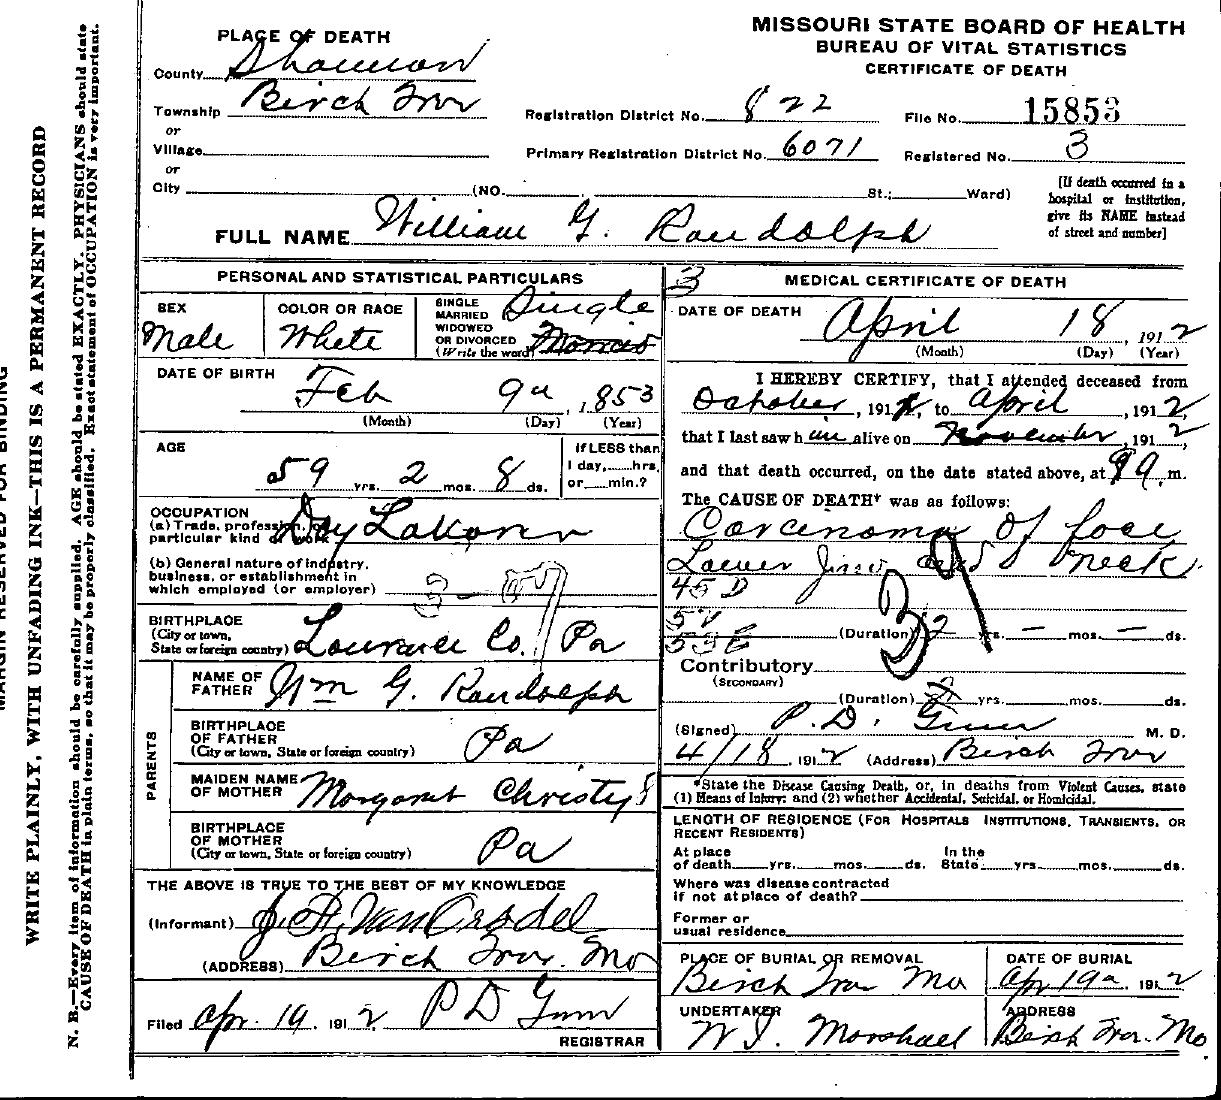 MISSOURI STATE BOARD OF HEALTH
BUREAU OF VITAL STATISTICS
CERTIFICATE OF DEATH
PLACE OF DEATH
County Shannon
Township Birch Tree
or
Village
or
City (NO. St.; Ward)
Registration District No. 822
File No. 15853
Primary Registration District No. 6071
Registered No. 3
[If death occurred in a
hospital or institution,
give its NAME instead
of street and number]
FULL NAME William G. Randolph
PERSONAL AND STATISTICAL PARTICULARS
SEX
Male
COLOR OR RACE
White
SINGLE
MARRIED
WIDOWED
OR DIVORCED
(Write the word)
Single
DATE OF BIRTH
Feb 9th, 1853
(Month) (Day) (Year)
AGE
59 yrs. 2 mos. 8 ds.
If LESS than
1 day, hrs.
or min.?
OCCUPATION
(a) Trade, profession, or
particular kind of work Day Laborer
(b) General nature of industry,
business, or establishment in
which employed (or employer)
BIRTHPLACE
(City or town,
State or foreign country) Lawrence Co. Pa
PARENTS
NAME OF
FATHER Wm G. Randolph
BIRTHPLACE
OF FATHER
(City or town, State or foreign country) Pa
MAIDEN NAME
OF MOTHER Margaret Christy
BIRTHPLACE
OF MOTHER
(City or town, State or foreign country) Pa
THE ABOVE IS TRUE TO THE BEST OF MY KNOWLEDGE
(Informant) J. H. Van Orsdel
(ADDRESS) Birch Tree. Mo
Filed Apr. 19. 1912 P D Gunn
REGISTRAR
3
MEDICAL CERTIFICATE OF DEATH
DATE OF DEATH
April 18, 1912
(Month) (Day) (Year)
I HEREBY CERTIFY, that I attended deceased from
October, 191 , to April, 1912,
that I last saw him alive on November, 1912,
and that death occurred, on the date stated above, at 9 m.
The CAUSE OF DEATH* was as follows:
Carcinoma of face
Lower Jaw and neck
39
45 D
(Duration) 2 yrs. – mos. – ds.
Contributory
(SECONDARY)
(Duration) yrs. mos. ds.
(Signed) P. D. Gunn M. D.
4/18, 1912 (Address) Birch Tree
*State the Disease Causing Death, or, in deaths from Violent Causes, state
(1) Means of Injury; and (2) whether Accidental, Suicidal, or Homicidal.
LENGTH OF RESIDENCE (FOR HOSPITALS INSTITUTIONS, TRANSIENTS, OR
RECENT RESIDENTS)
At place
of death yrs. mos. ds.
In the
State yrs. mos. ds.
Where was disease contracted
if not at place of death?
Former or
usual residence
PLACE OF BURIAL OR REMOVAL
Birch Tree Mo
DATE OF BURIAL
Apr 19th 1912
UNDERTAKER
W. J. Marshall
ADDRESS
Birch Tree. Mo
MARGIN RESERVED FOR BINDING
WRITE PLAINLY, WITH UNFADING INK—THIS IS A PERMANENT RECORD
N. B.—Every item of information should be carefully supplied. AGE should be stated EXACTLY. PHYSICIANS should state
CAUSE OF DEATH in plain terms, so that it may be properly classified. Exact statement of OCCUPATION is very important.